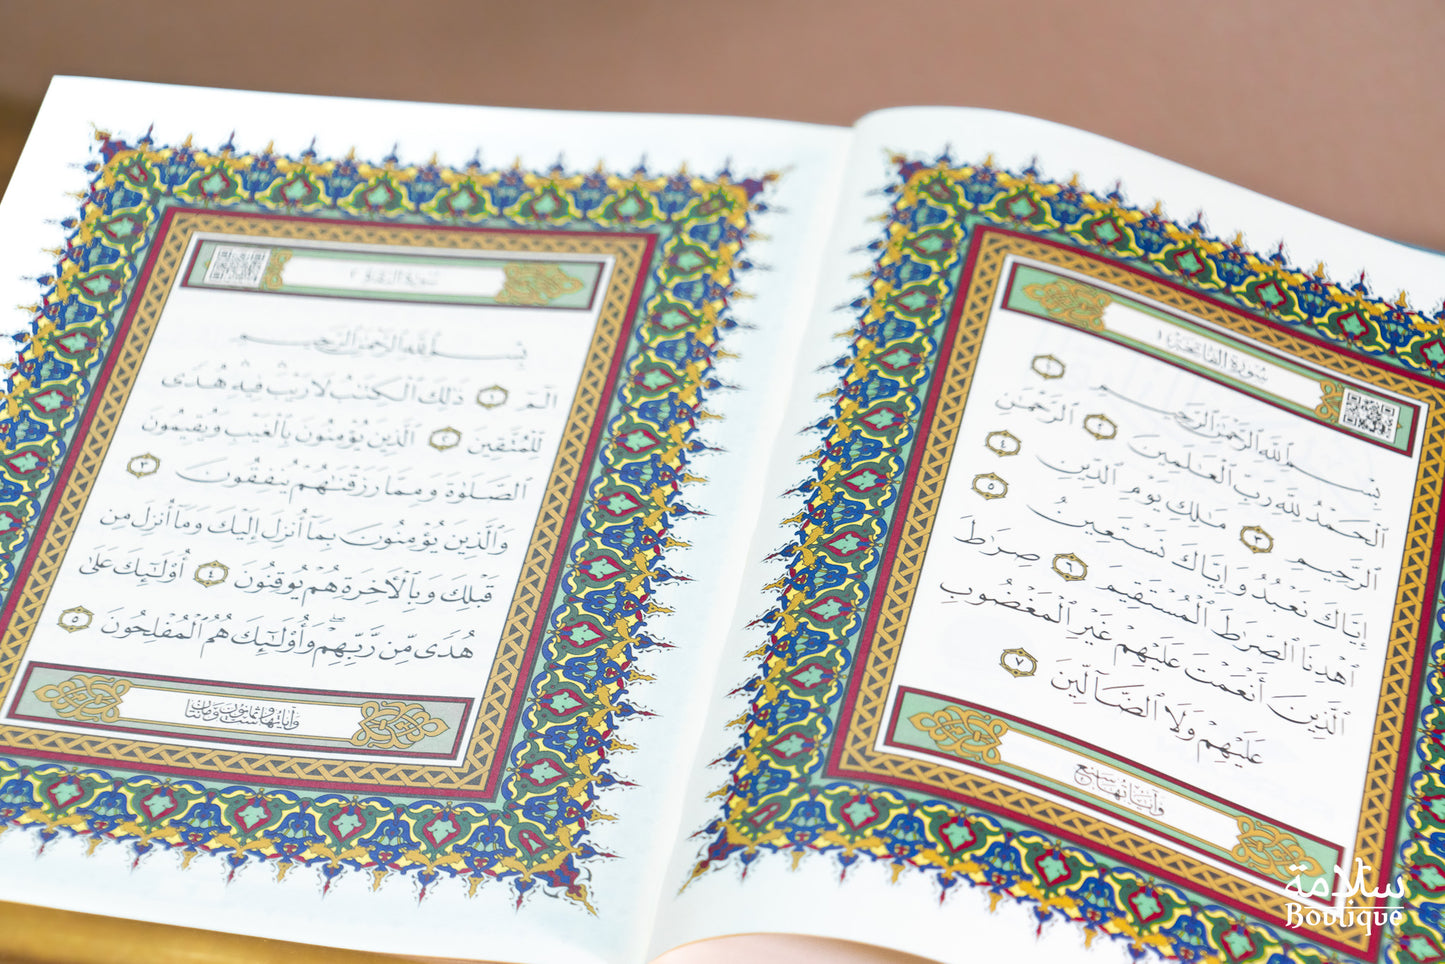 سُورَةُ الفَاتِحَةِ ١
بِسْمِ ٱللَّهِ ٱلرَّحْمَٰنِ ٱلرَّحِيمِ ١
ٱلْحَمْدُ لِلَّهِ رَبِّ ٱلْعَٰلَمِينَ ٢ ٱلرَّحْمَٰنِ
ٱلرَّحِيمِ ٣ مَٰلِكِ يَوْمِ ٱلدِّينِ ٤
إِيَّاكَ نَعْبُدُ وَإِيَّاكَ نَسْتَعِينُ ٥
ٱهْدِنَا ٱلصِّرَٰطَ ٱلْمُسْتَقِيمَ ٦ صِرَٰطَ
ٱلَّذِينَ أَنْعَمْتَ عَلَيْهِمْ غَيْرِ ٱلْمَغْضُوبِ
عَلَيْهِمْ وَلَا ٱلضَّآلِّينَ ٧
وَآيَاتُهَا سَبْعٌ
سُورَةُ البَقَرَةِ ٢
بِسْمِ ٱللَّهِ ٱلرَّحْمَٰنِ ٱلرَّحِيمِ
الٓمٓ ١ ذَٰلِكَ ٱلْكِتَٰبُ لَا رَيْبَۛ فِيهِۛ هُدًى
لِّلْمُتَّقِينَ ٢ ٱلَّذِينَ يُؤْمِنُونَ بِٱلْغَيْبِ وَيُقِيمُونَ
ٱلصَّلَوٰةَ وَمِمَّا رَزَقْنَٰهُمْ يُنفِقُونَ ٣
وَٱلَّذِينَ يُؤْمِنُونَ بِمَآ أُنزِلَ إِلَيْكَ وَمَآ أُنزِلَ مِن
قَبْلِكَ وَبِٱلْءَاخِرَةِ هُمْ يُوقِنُونَ ٤ أُو۟لَٰٓئِكَ عَلَىٰ
هُدًى مِّن رَّبِّهِمْۖ وَأُو۟لَٰٓئِكَ هُمُ ٱلْمُفْلِحُونَ ٥
وَآيَاتُهَا سِتٌّ وَثَمَانُونَ وَمِئَتَانِ
سلامة
Boutique